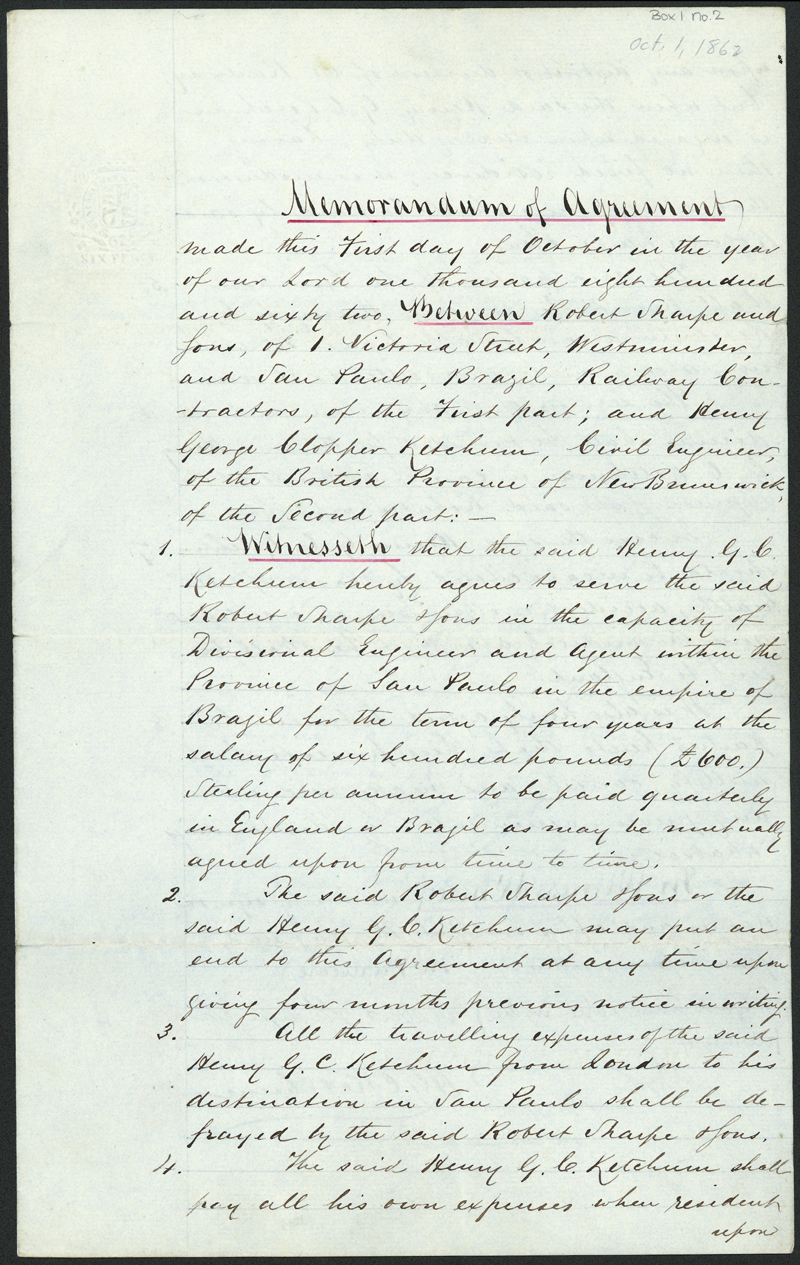 Box 1 no. 2
Oct. 1, 1862
Memorandum of Agreement
made this First day of October in the year
of our Lord one thousand eight hundred
and sixty two, Between Robert Sharpe and
Sons, of 1. Victoria Street, Westminster,
and San Paulo, Brazil, Railway Con-
-tractors, of the First part; and Henry
George Clopper Ketchum, Civil Engineer,
of the British Province of New Brunswick,
of the Second part: —
1. Witnesseth that the said Henry G. C.
Ketchum hereby agrees to serve the said
Robert Sharpe & Sons in the capacity of
Divisional Engineer and Agent within the
Province of San Paulo in the empire of
Brazil for the term of four years at the
salary of six hundred pounds (£600.)
Sterling per annum to be paid quarterly
in England or Brazil as may be mutually
agreed upon from time to time.
2. The said Robert Sharpe & Sons or the
said Henry G. C. Ketchum may put an
end to this Agreement at any time upon
giving four months previous notice in writing.
3. All the travelling expenses of the said
Henry G. C. Ketchum from London to his
destination in San Paulo shall be de-
frayed by the said Robert Sharpe & Sons.
4. The said Henry G. C. Ketchum shall
pay all his own expenses when resident
upon